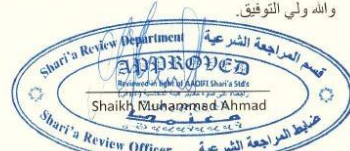 والله ولي التوفيق.
Shari'a Review Department
قسم المراجعة الشرعية
APPROVED
Reviewed in light of AAOIFI Shari'a Std's
Shaikh Muhammad Ahmad
Shari'a Review Officer
ضابط المراجعة الشرعية